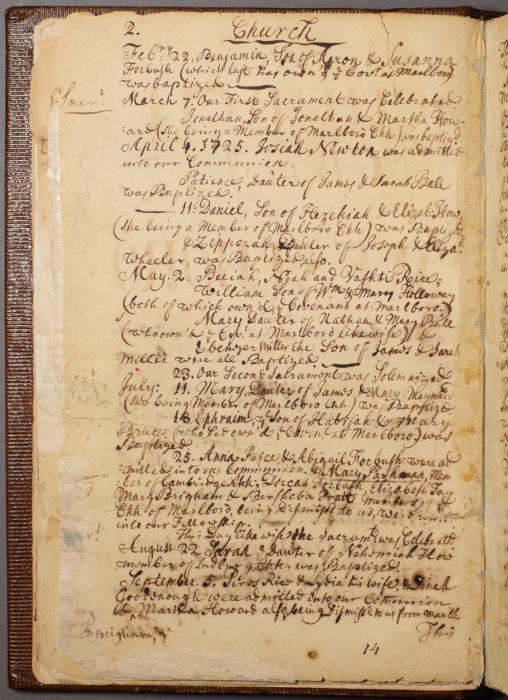 2. Church
Feb.ry 22, Benjamin, Son of Aaron & Susanna
Forbush (which last has own'd ye Covt. at Marlboro)
was baptized.
March 7. Our First Sacrament was Celebrated
Jonathan, Son of Jonathan & Martha How-
ard (she being a Member of Marlboro Chh) was baptiz'd
April 4. 1725. Josiah Newton was admitted
into our Communion.
Patience Dauter of James & Sarah Ball
was Baptized.
11. Daniel, Son of Hezekiah & Eliza. How,
(she being a Member of Marlboro Chh) was Baptiz'd
& Zipporah, Dauter of Joseph & Eliza.
Wheeler, was Baptized also.
May. 2. Beriah, Noah and Vashti Rice,
William Son of Wm & Mary Holloway
(both of which own'd ye Covenant at Marlboro.)
Mary Dauter of Nathan & Mary Ball
(who own'd ye Covt. at Marlboro likewise) &
Ebenezer Miller the Son of James & Sarah
Miller were all Baptized.
23. Our Second Sacrament was Solemnized
July: 11. Mary, Dauter of James & Mary Maynard
(she being Member of Marlboro Chh) was Baptized
18 Ephraim, ye Son of Habijah & Mary
Bruce (who has own'd ye Covent at Marlboro) was
Baptized.
25. Anna Rice & Abigail Forbush were ad
mitted into our Communion & Mary Parkman, Mem
ber of Cambridge Chh, Dorcas Forbush, Elizabeth Fay
Mary Brigham & Bersheba Pratt members of ye
Chh of Marlboro, being dismiss'd to us, were
into our Fellowship.
This Day likewise the Sacramt. was Celebrated
August 22 Sarah ye Dauter of Nehemiah How
member of Sudbury Chh was Baptized.
September. 5. Rice & Lydia his wife, & Dinah
Goodenough were admitted into our Communion
& Martha Howard also being dismiss'd to us from Marlb.
Brigham,
This
14